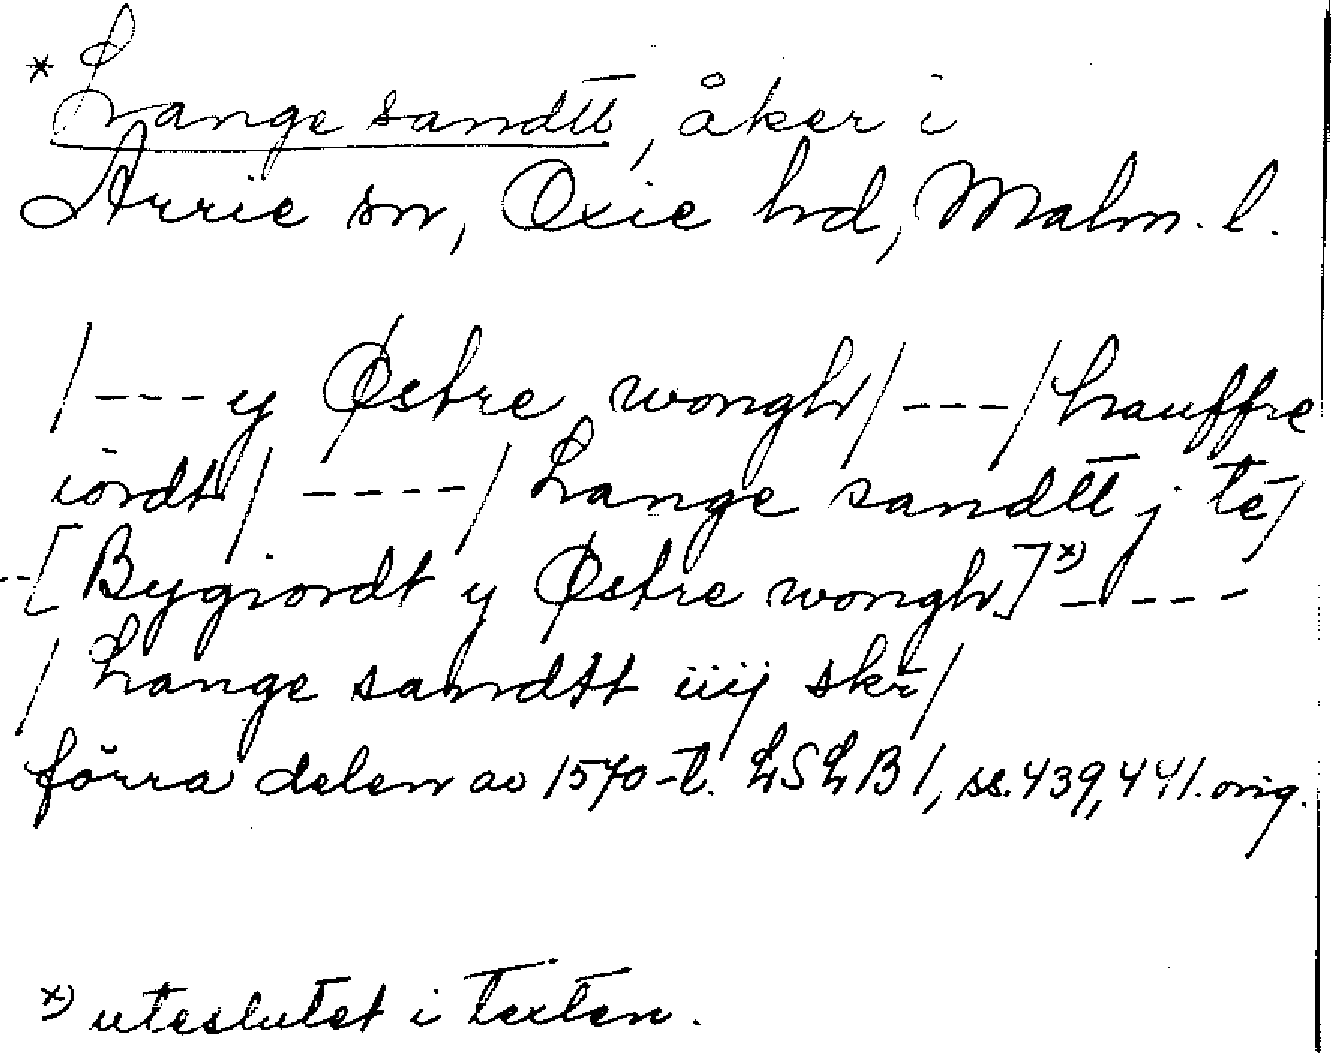 * Lange sandtt, åker i
Arrie sn, Oxie hd, Malm. l.
/---y Østre wongh/---/hauffre
iordt/----/Lange sandtt j te/
--[Bygiordt y Østre wongh]*)----
/Lange sandtt iiij skr/
förra delen av 1570-t. LSLB 1, ss. 439, 441. orig.
*) uteslutet i texten.